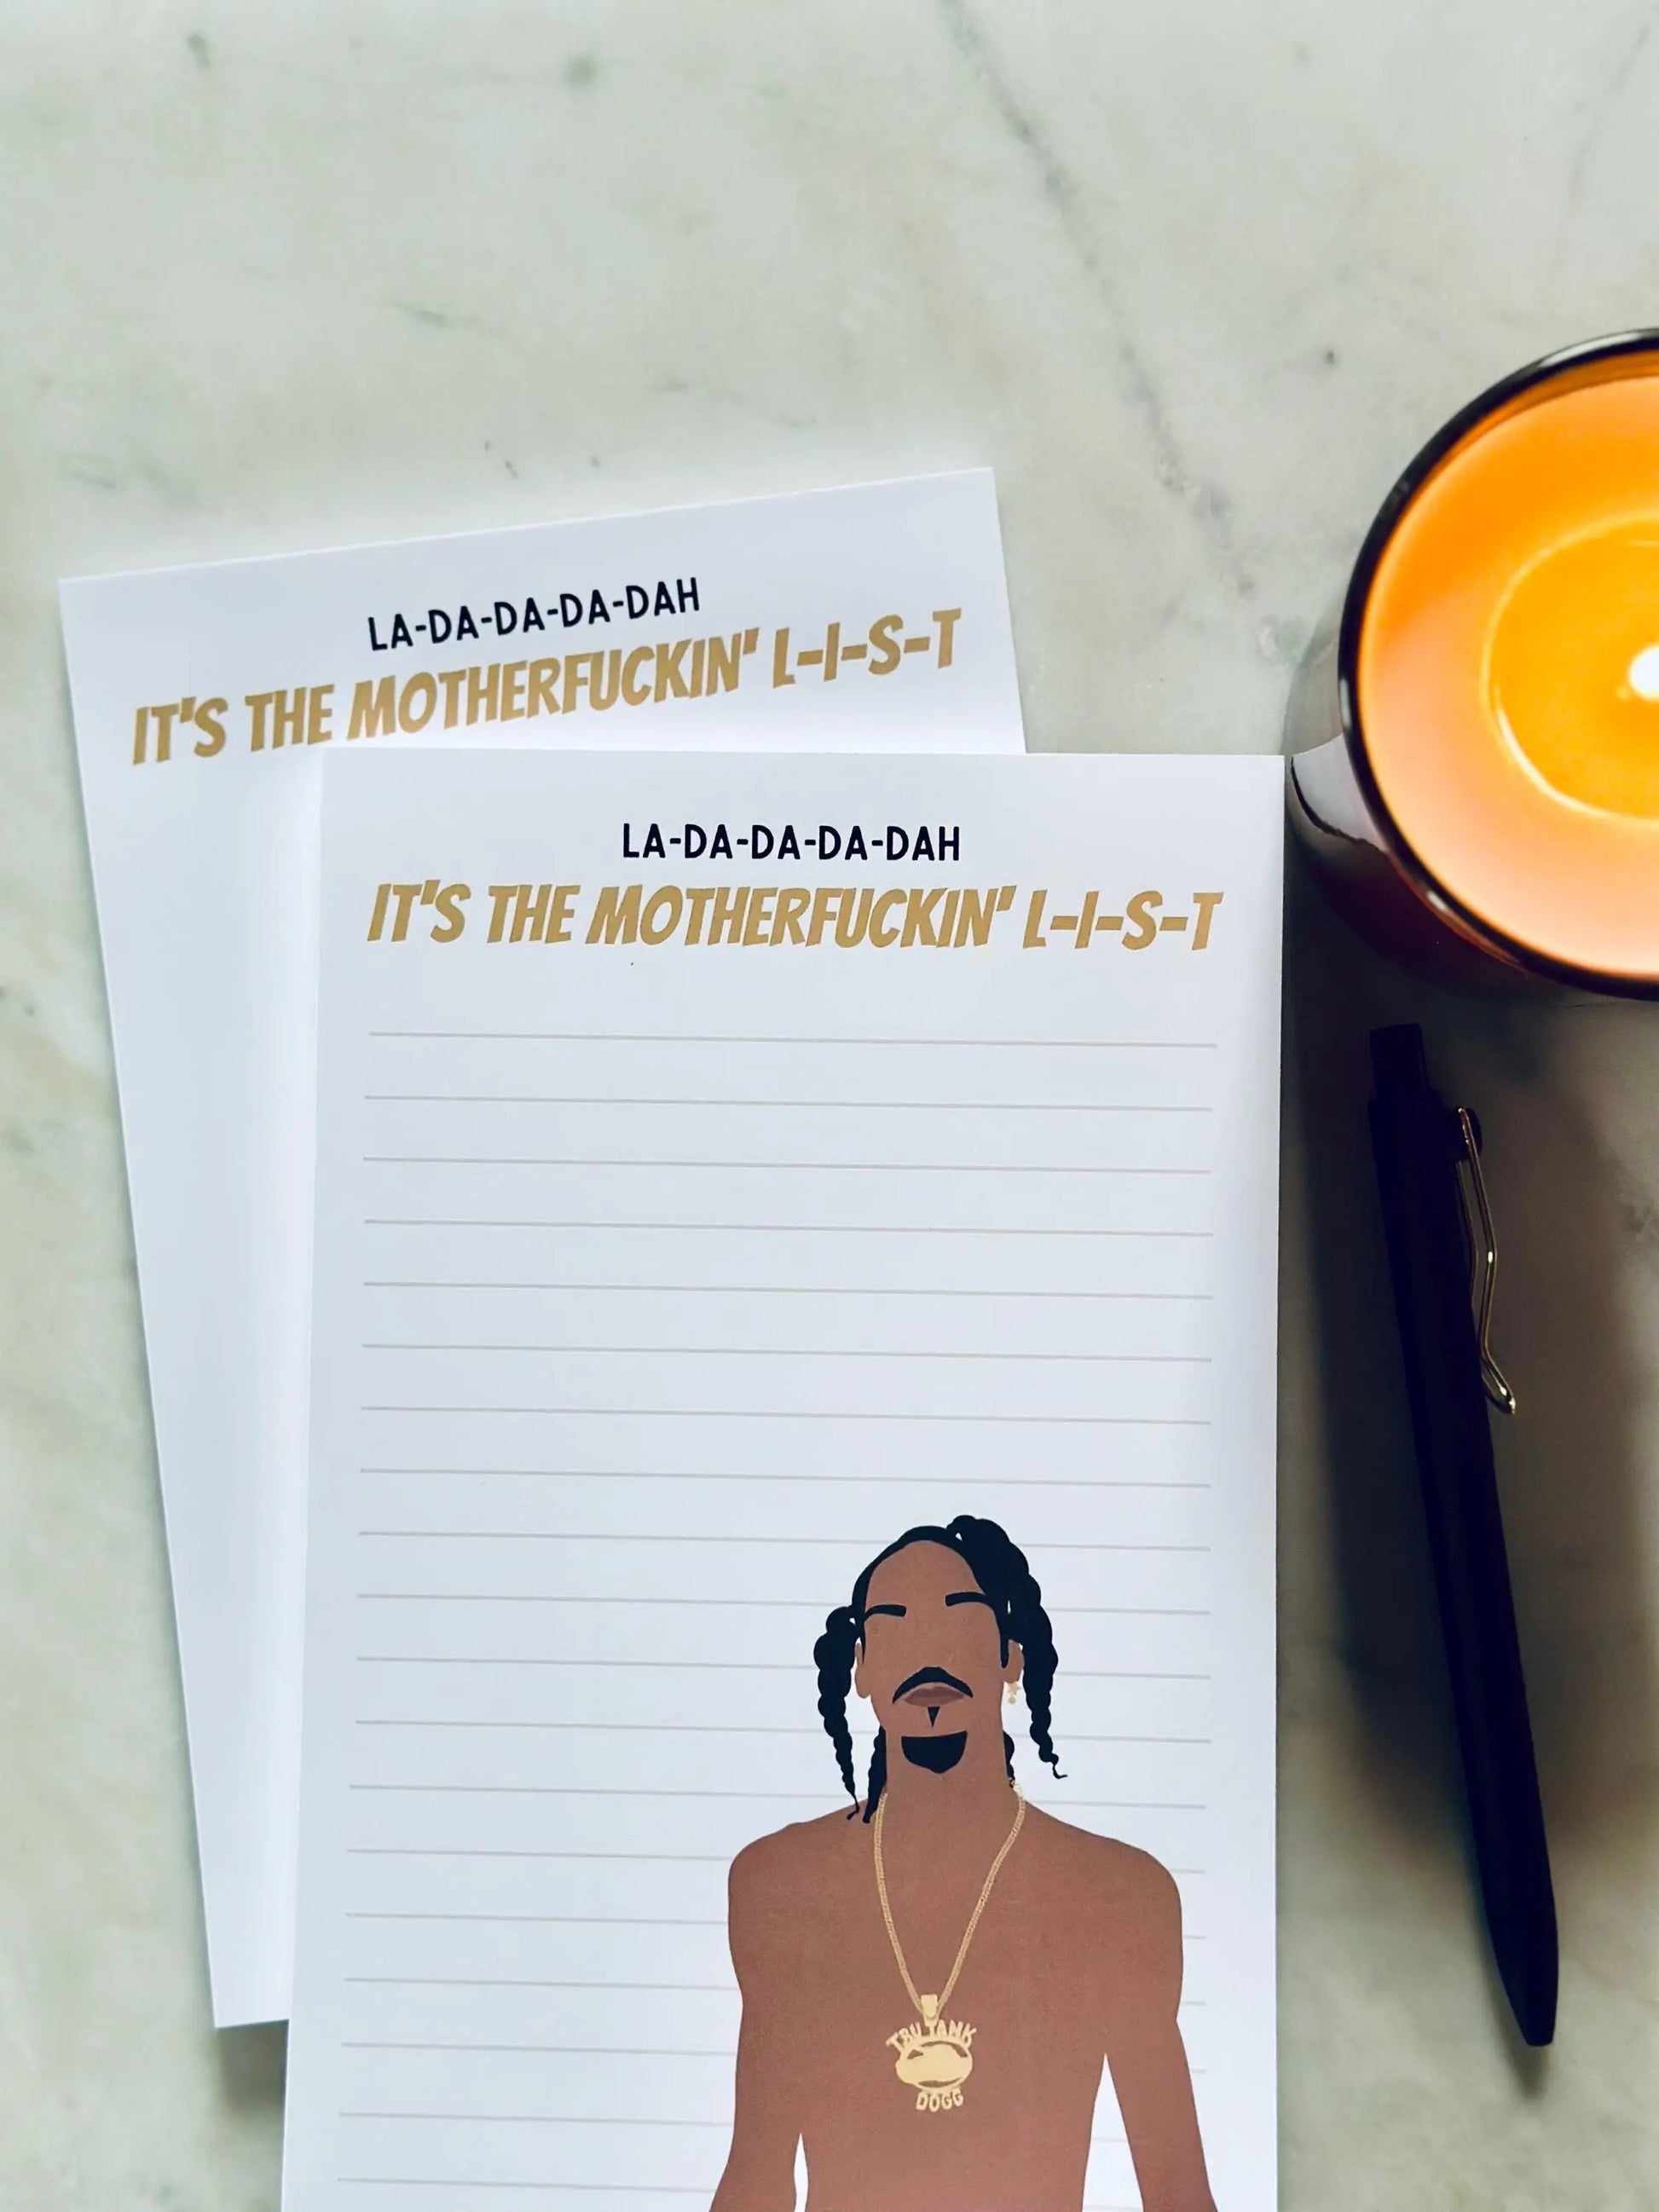 LA-DA-DA-DA-DAH
IT'S THE MOTHERFUCKIN' L-I-S-T
LA-DA-DA-DA-DAH
IT'S THE MOTHERFUCKIN' L-I-S-T
TRU TANK
DOGG